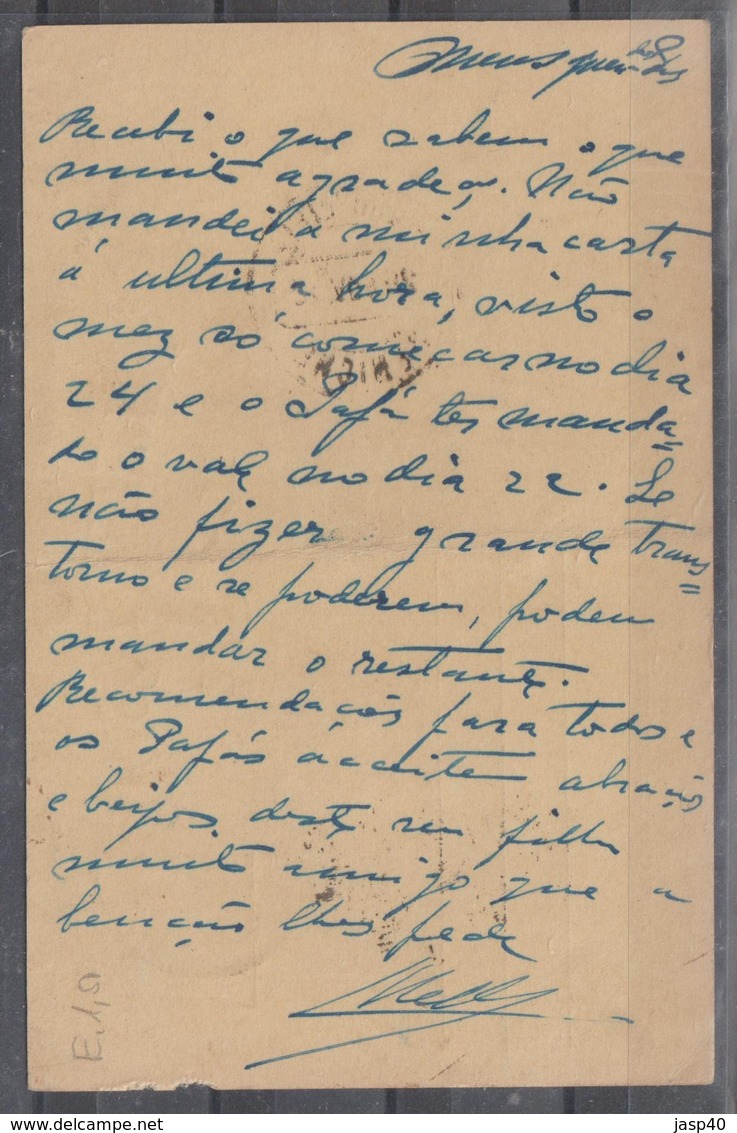 Meus queridos Paes
Recebi o que sabem o que
muito agradeço. Não
mandei a minha carta
á ultima hora, visto o
mez só começar no dia
24 e o Papá ter manda=
do o vale no dia 22. Se
não fizer grande trans=
torno e se poderem, podem
mandar o restante.
Recomendações para todos e
os Papás áceitem abraços
e beijos deste seu filho
muito amigo que a
benção lhes pede
E.1,0
jasp40